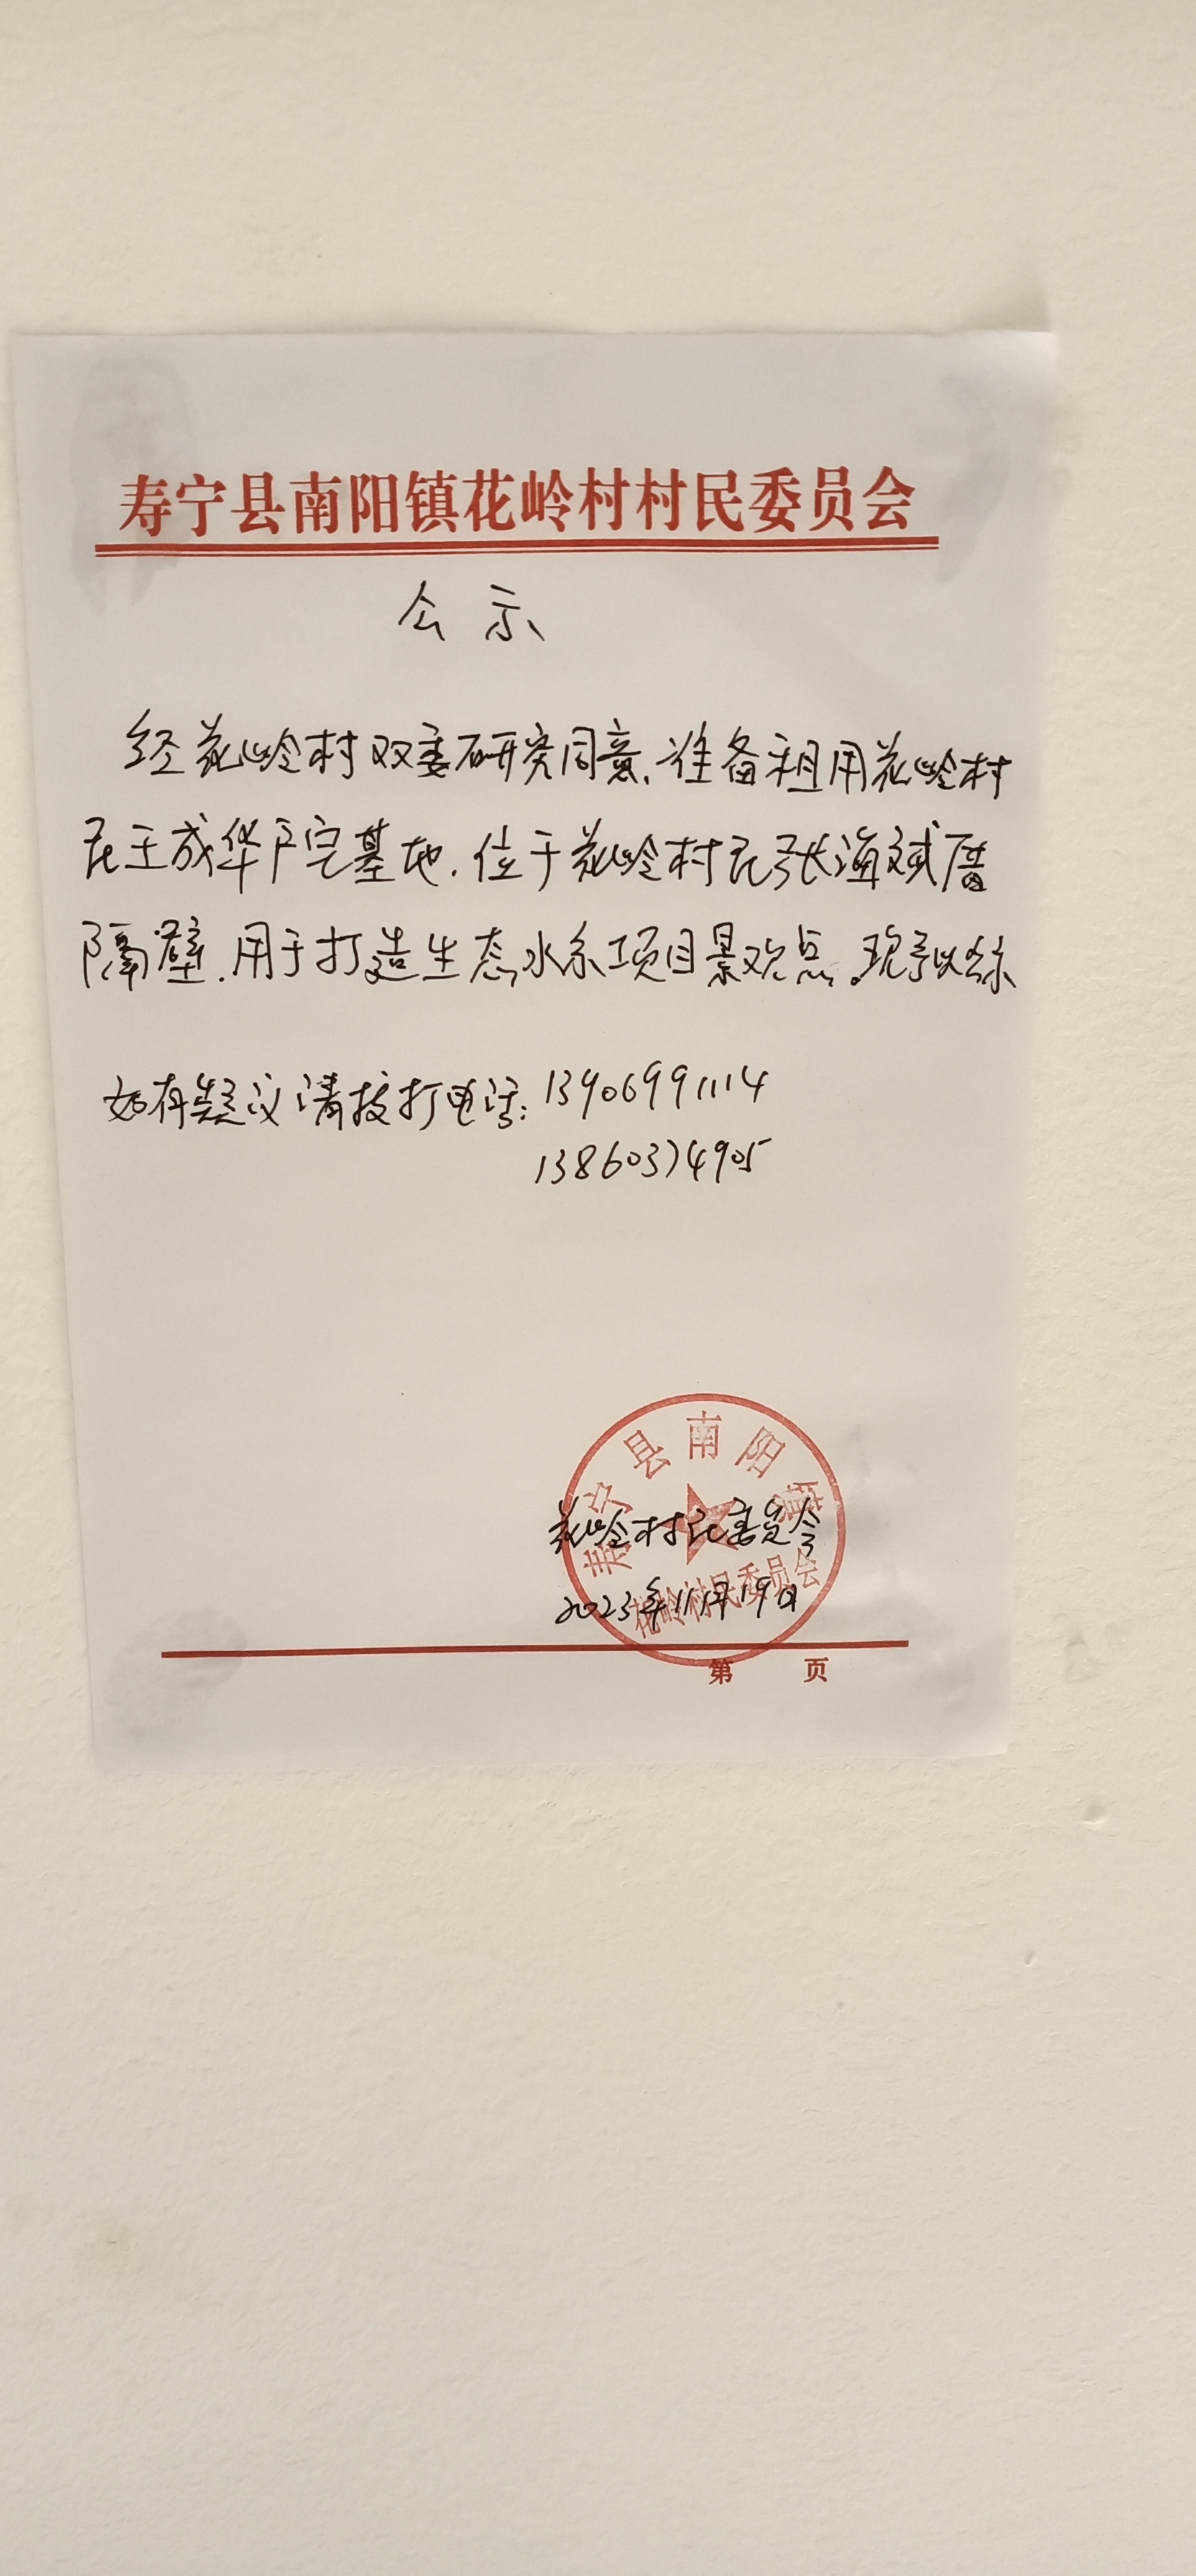 寿宁县南阳镇花岭村村民委员会
公示
经花岭村双委研究同意、准备租用花岭村
民王成华户宅基地.位于花岭村民张海斌厝
隔壁.用于打造生态水系项目景观点。现予以公示
如有疑议请拨打电话:13906991114
13860374905
寿宁县南阳镇
花岭村民委员会
花岭村民委员会
2023年11月19日
第 页